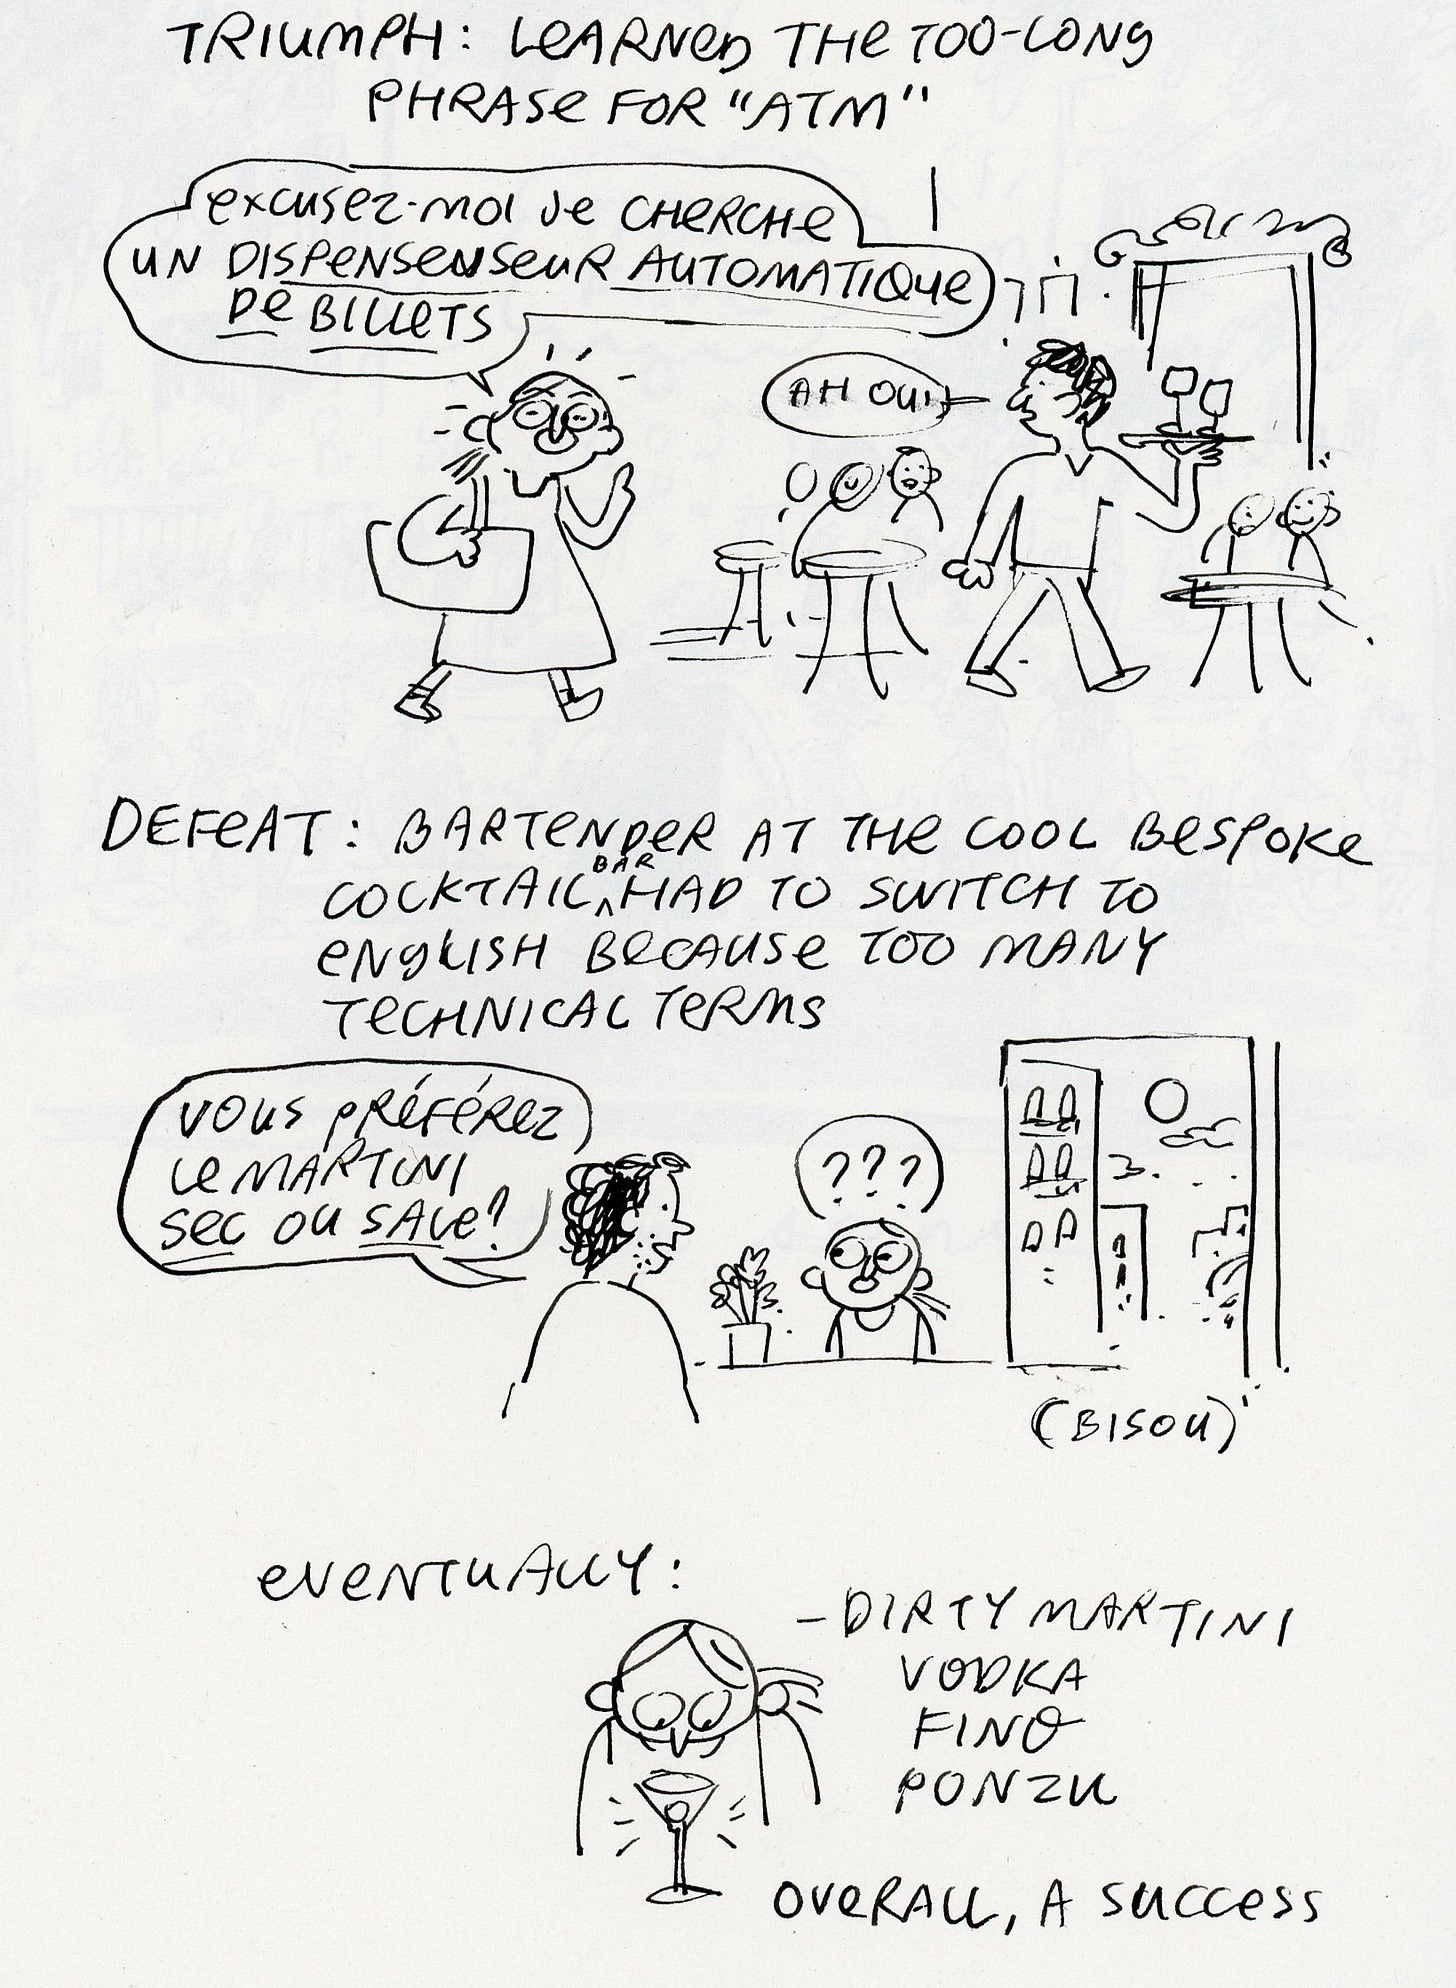 TRIUMPH: LEARNED THE TOO-LONG
PHRASE FOR "ATM"
EXCUSEZ-MOI JE CHERCHE
UN DISPENSENSEUR AUTOMATIQUE
DE BILLETS
AH OUI
DEFEAT: BARTENDER AT THE COOL BESPOKE
COCKTAIL BAR HAD TO SWITCH TO
ENGLISH BECAUSE TOO MANY
TECHNICAL TERMS
VOUS PRÉFÉREZ
LE MARTINI
SEC OU SALE?
???
(BISOU)
EVENTUALLY:
- DIRTY MARTINI
VODKA
FINO
PONZU
OVERALL, A SUCCESS